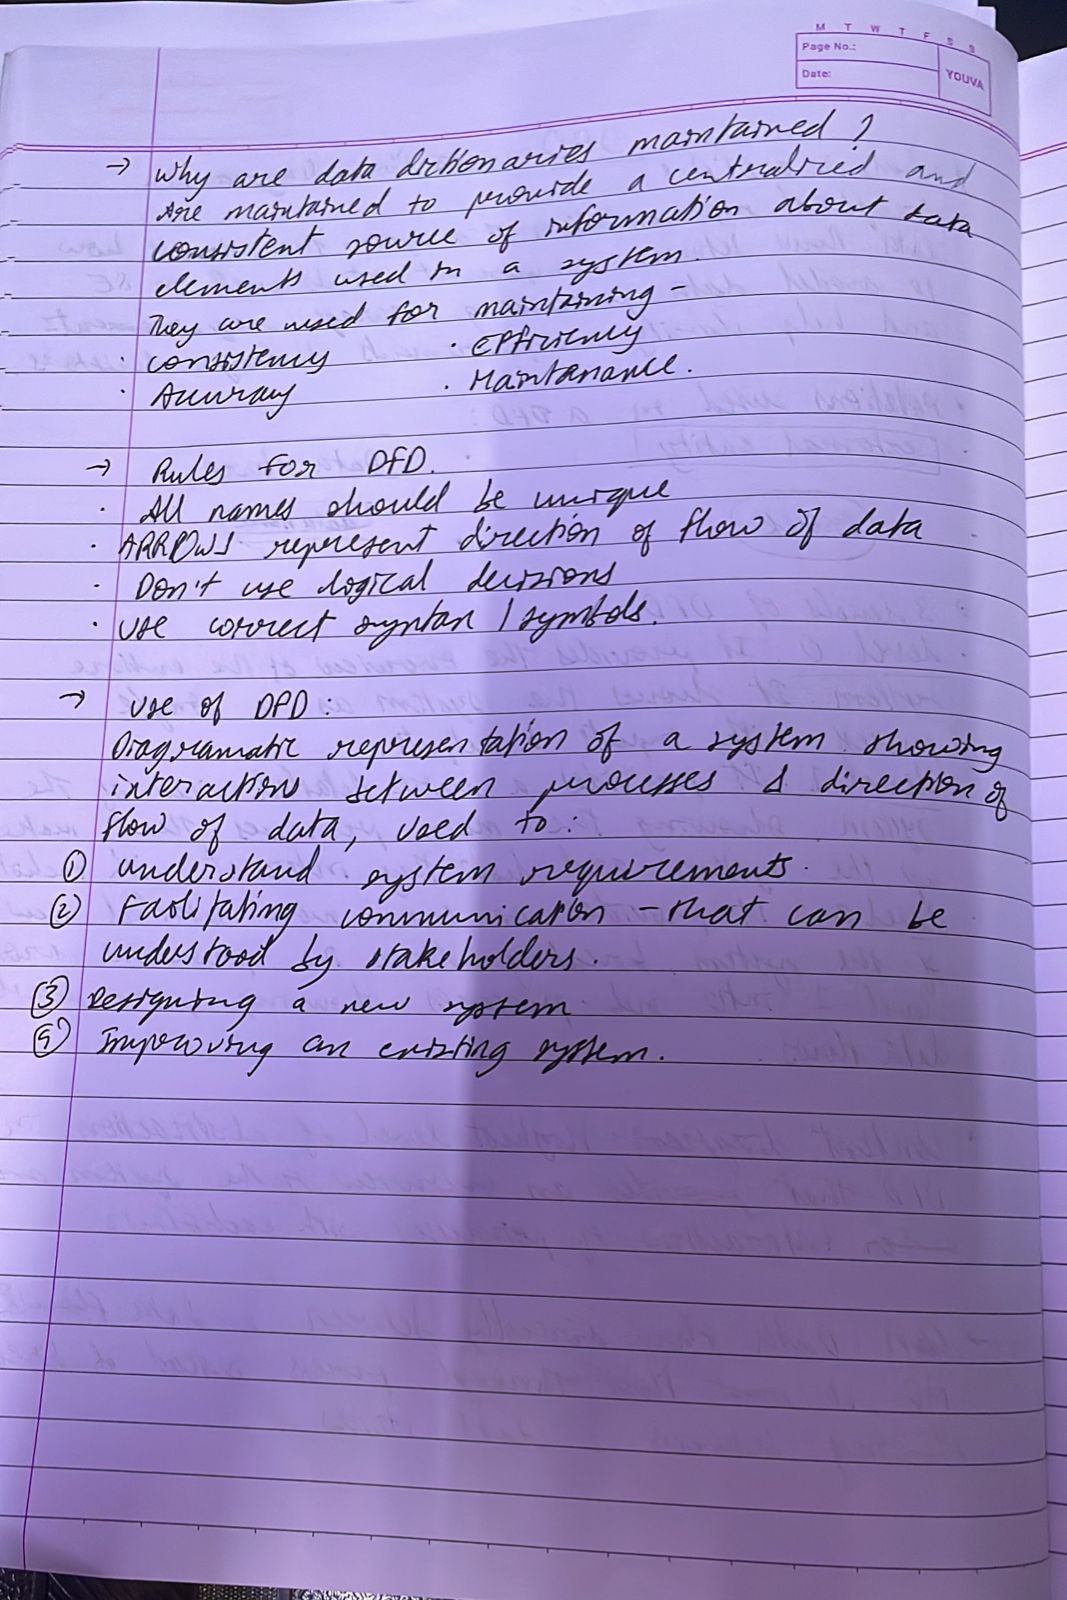 M T W T F S S
Page No.:
Date:
YOUVA
→ Why are data dictionaries maintained ?
Are maintained to provide a centralized and
consistent source of information about data
elements used in a system.
They are used for maintaining -
· consistency · Efficiency
· Accuracy · Maintenance.
→ Rules for DFD.
· All names should be unique
· ARROWS represent direction of flow of data
· Don't use logical decisions
· Use correct syntax / symbols.
→ Use of DFD :
Diagramatic representation of a system showing
interactions between processes & direction of
flow of data, used to :
① understand system requirements.
② Facilitating communication - that can be
understood by stakeholders.
③ Designing a new system
④ Improving an existing system.